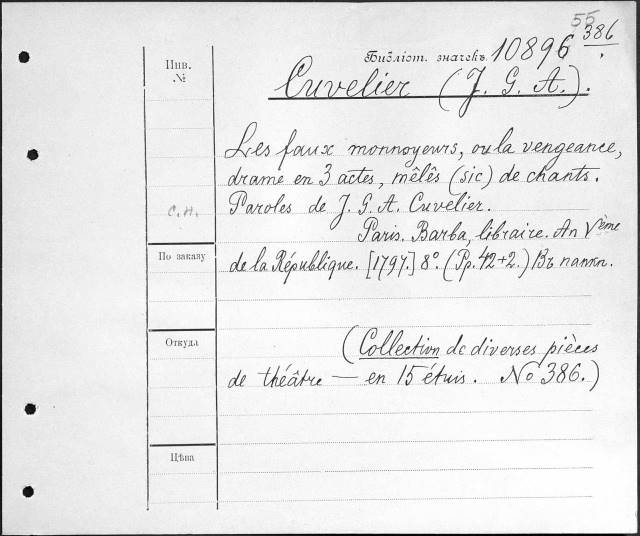 55
Инв.
№
Библіот. значекъ. 10896 386
Cuvelier (J. G. A.).
Les faux monnoyeurs, ou la vengeance,
drame en 3 actes, mêlês (sic) de chants.
С.Н.
Paroles de J. G. A. Cuvelier.
Paris. Barba, libraire. An Vème
По заказу
de la République. [1797.] 8º. (Pp. 42+2.) Въ папкѣ.
Откуда
(Collection de diverses pièces
de théâtre — en 15 étuis. No 386.)
Цѣна